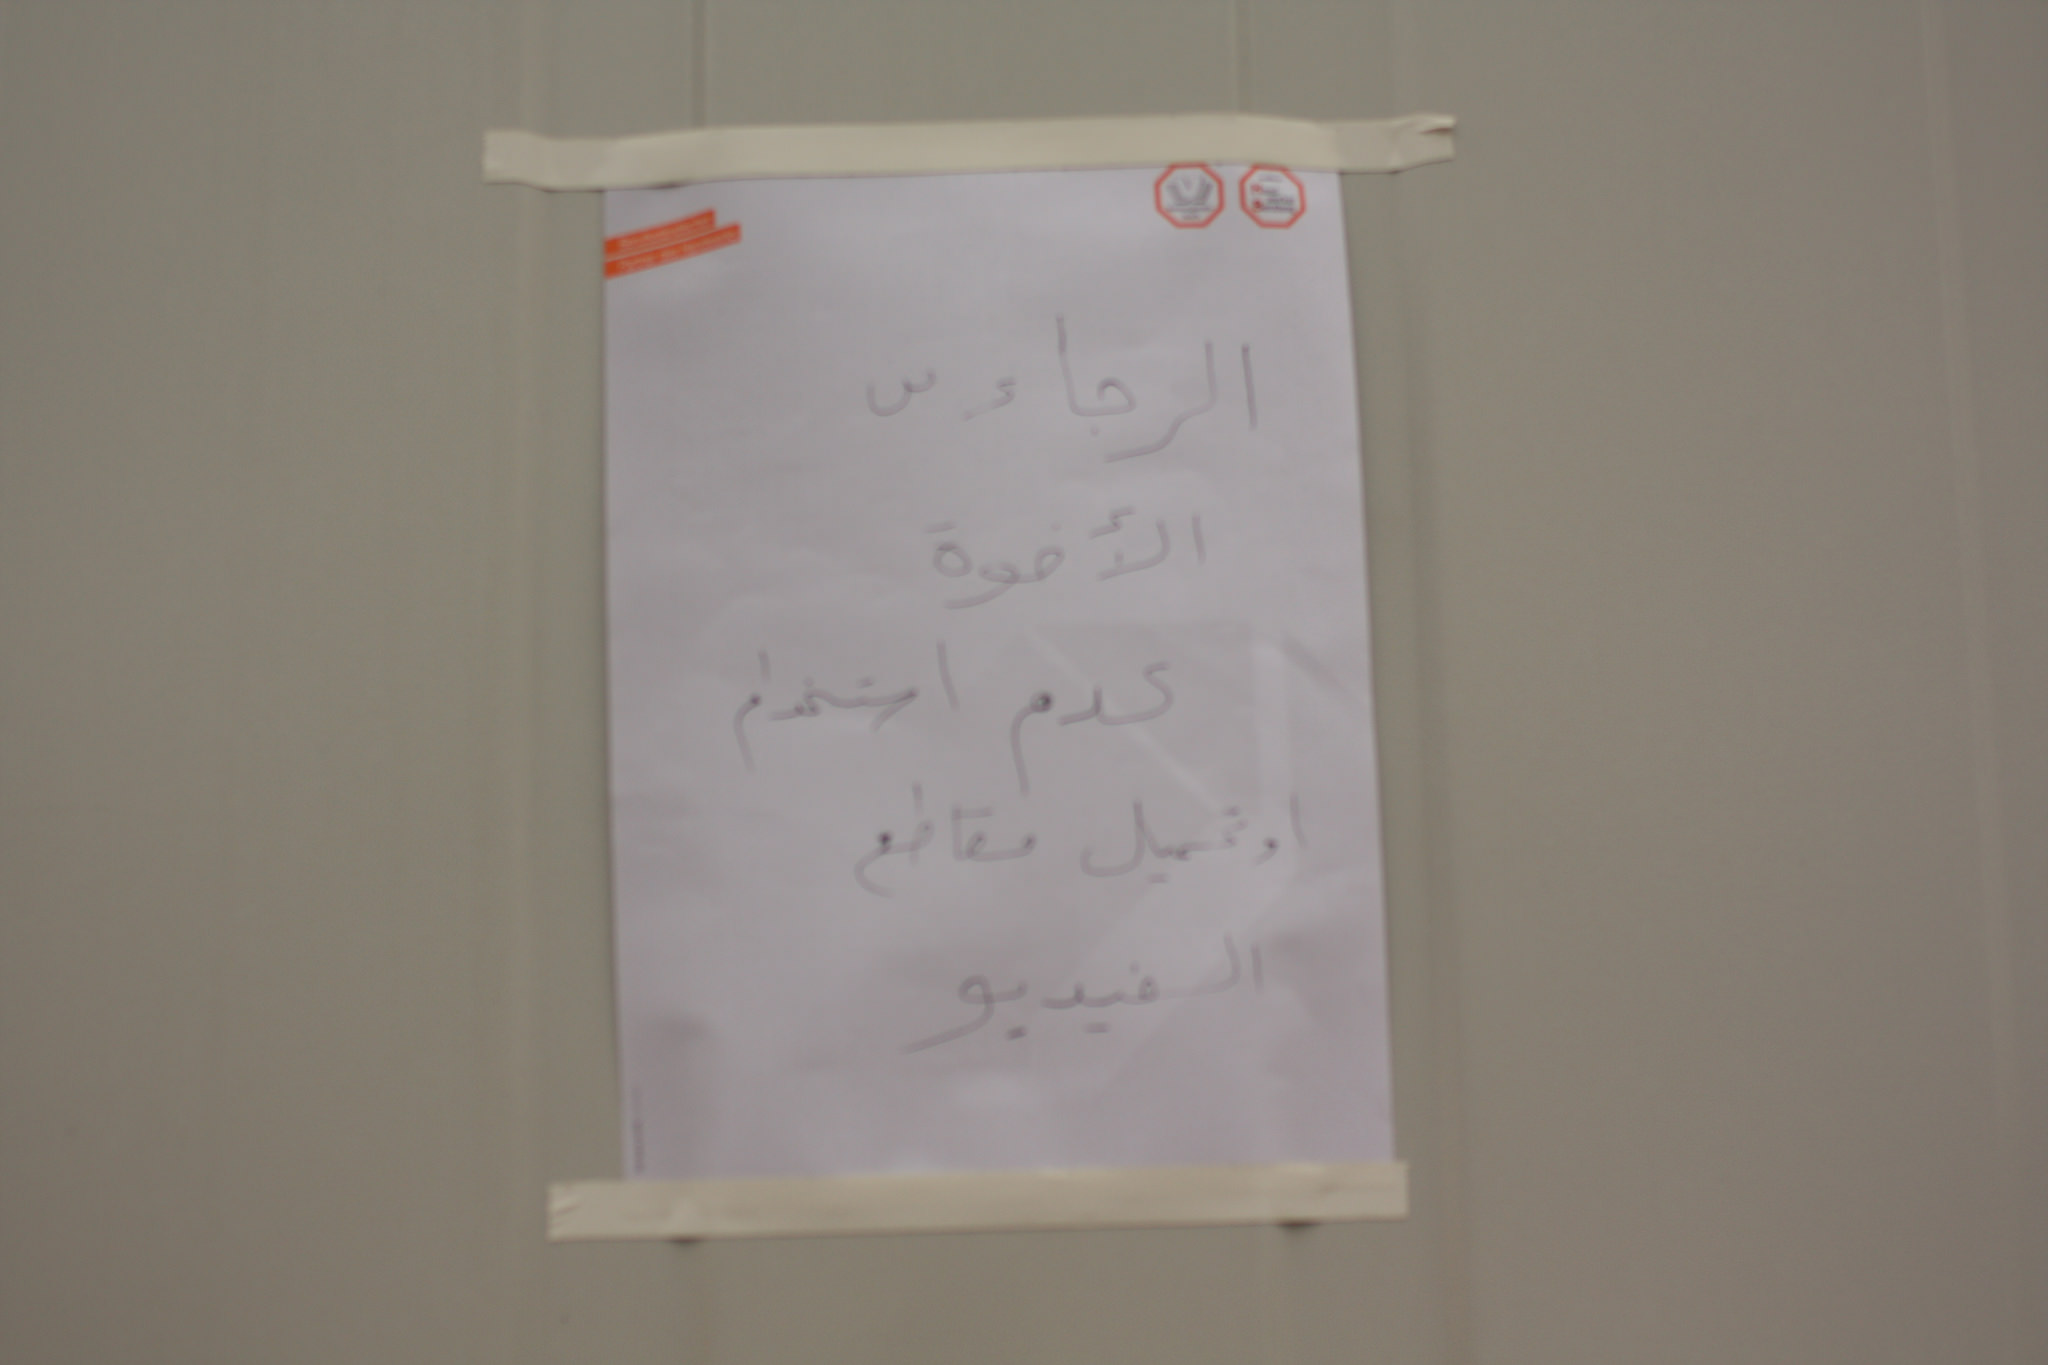 الرجاء س
الأخوة
عدم استخدام
او تحميل مقاطع
الفيديو